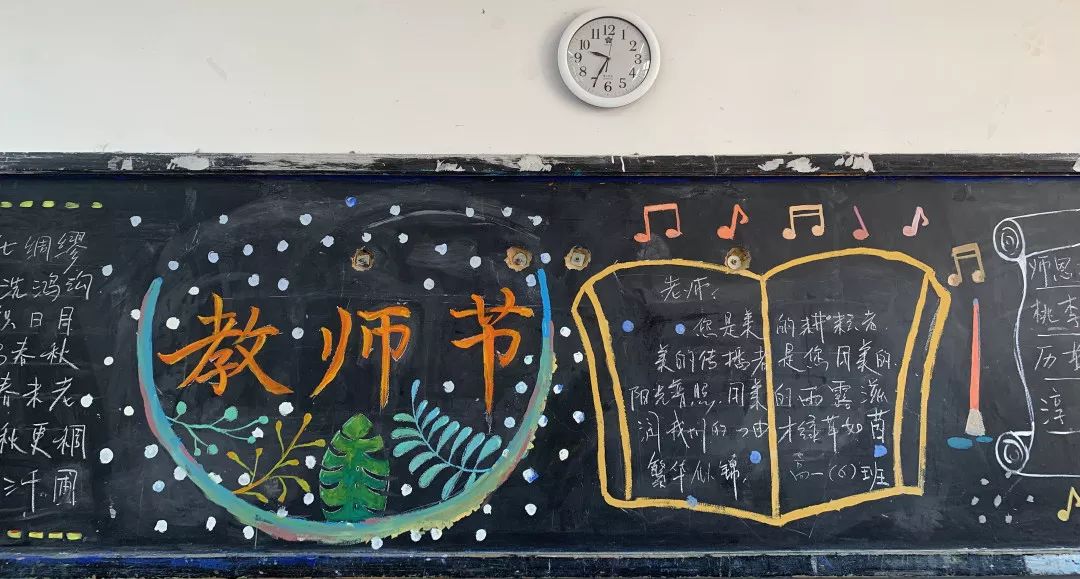 12
1
2
3
4
5
6
7
8
9
10
11
绸缪
洗鸿沟
日月
春秋
春未老
秋更稠
汗 圃
教师节
老师:
您是美的耕耘者,
美的传播者是您用美的
阳光普照,用美的雨露滋
润我们的心田才绿草如茵
繁华似锦。 高一(6)班
师恩
桃李
历